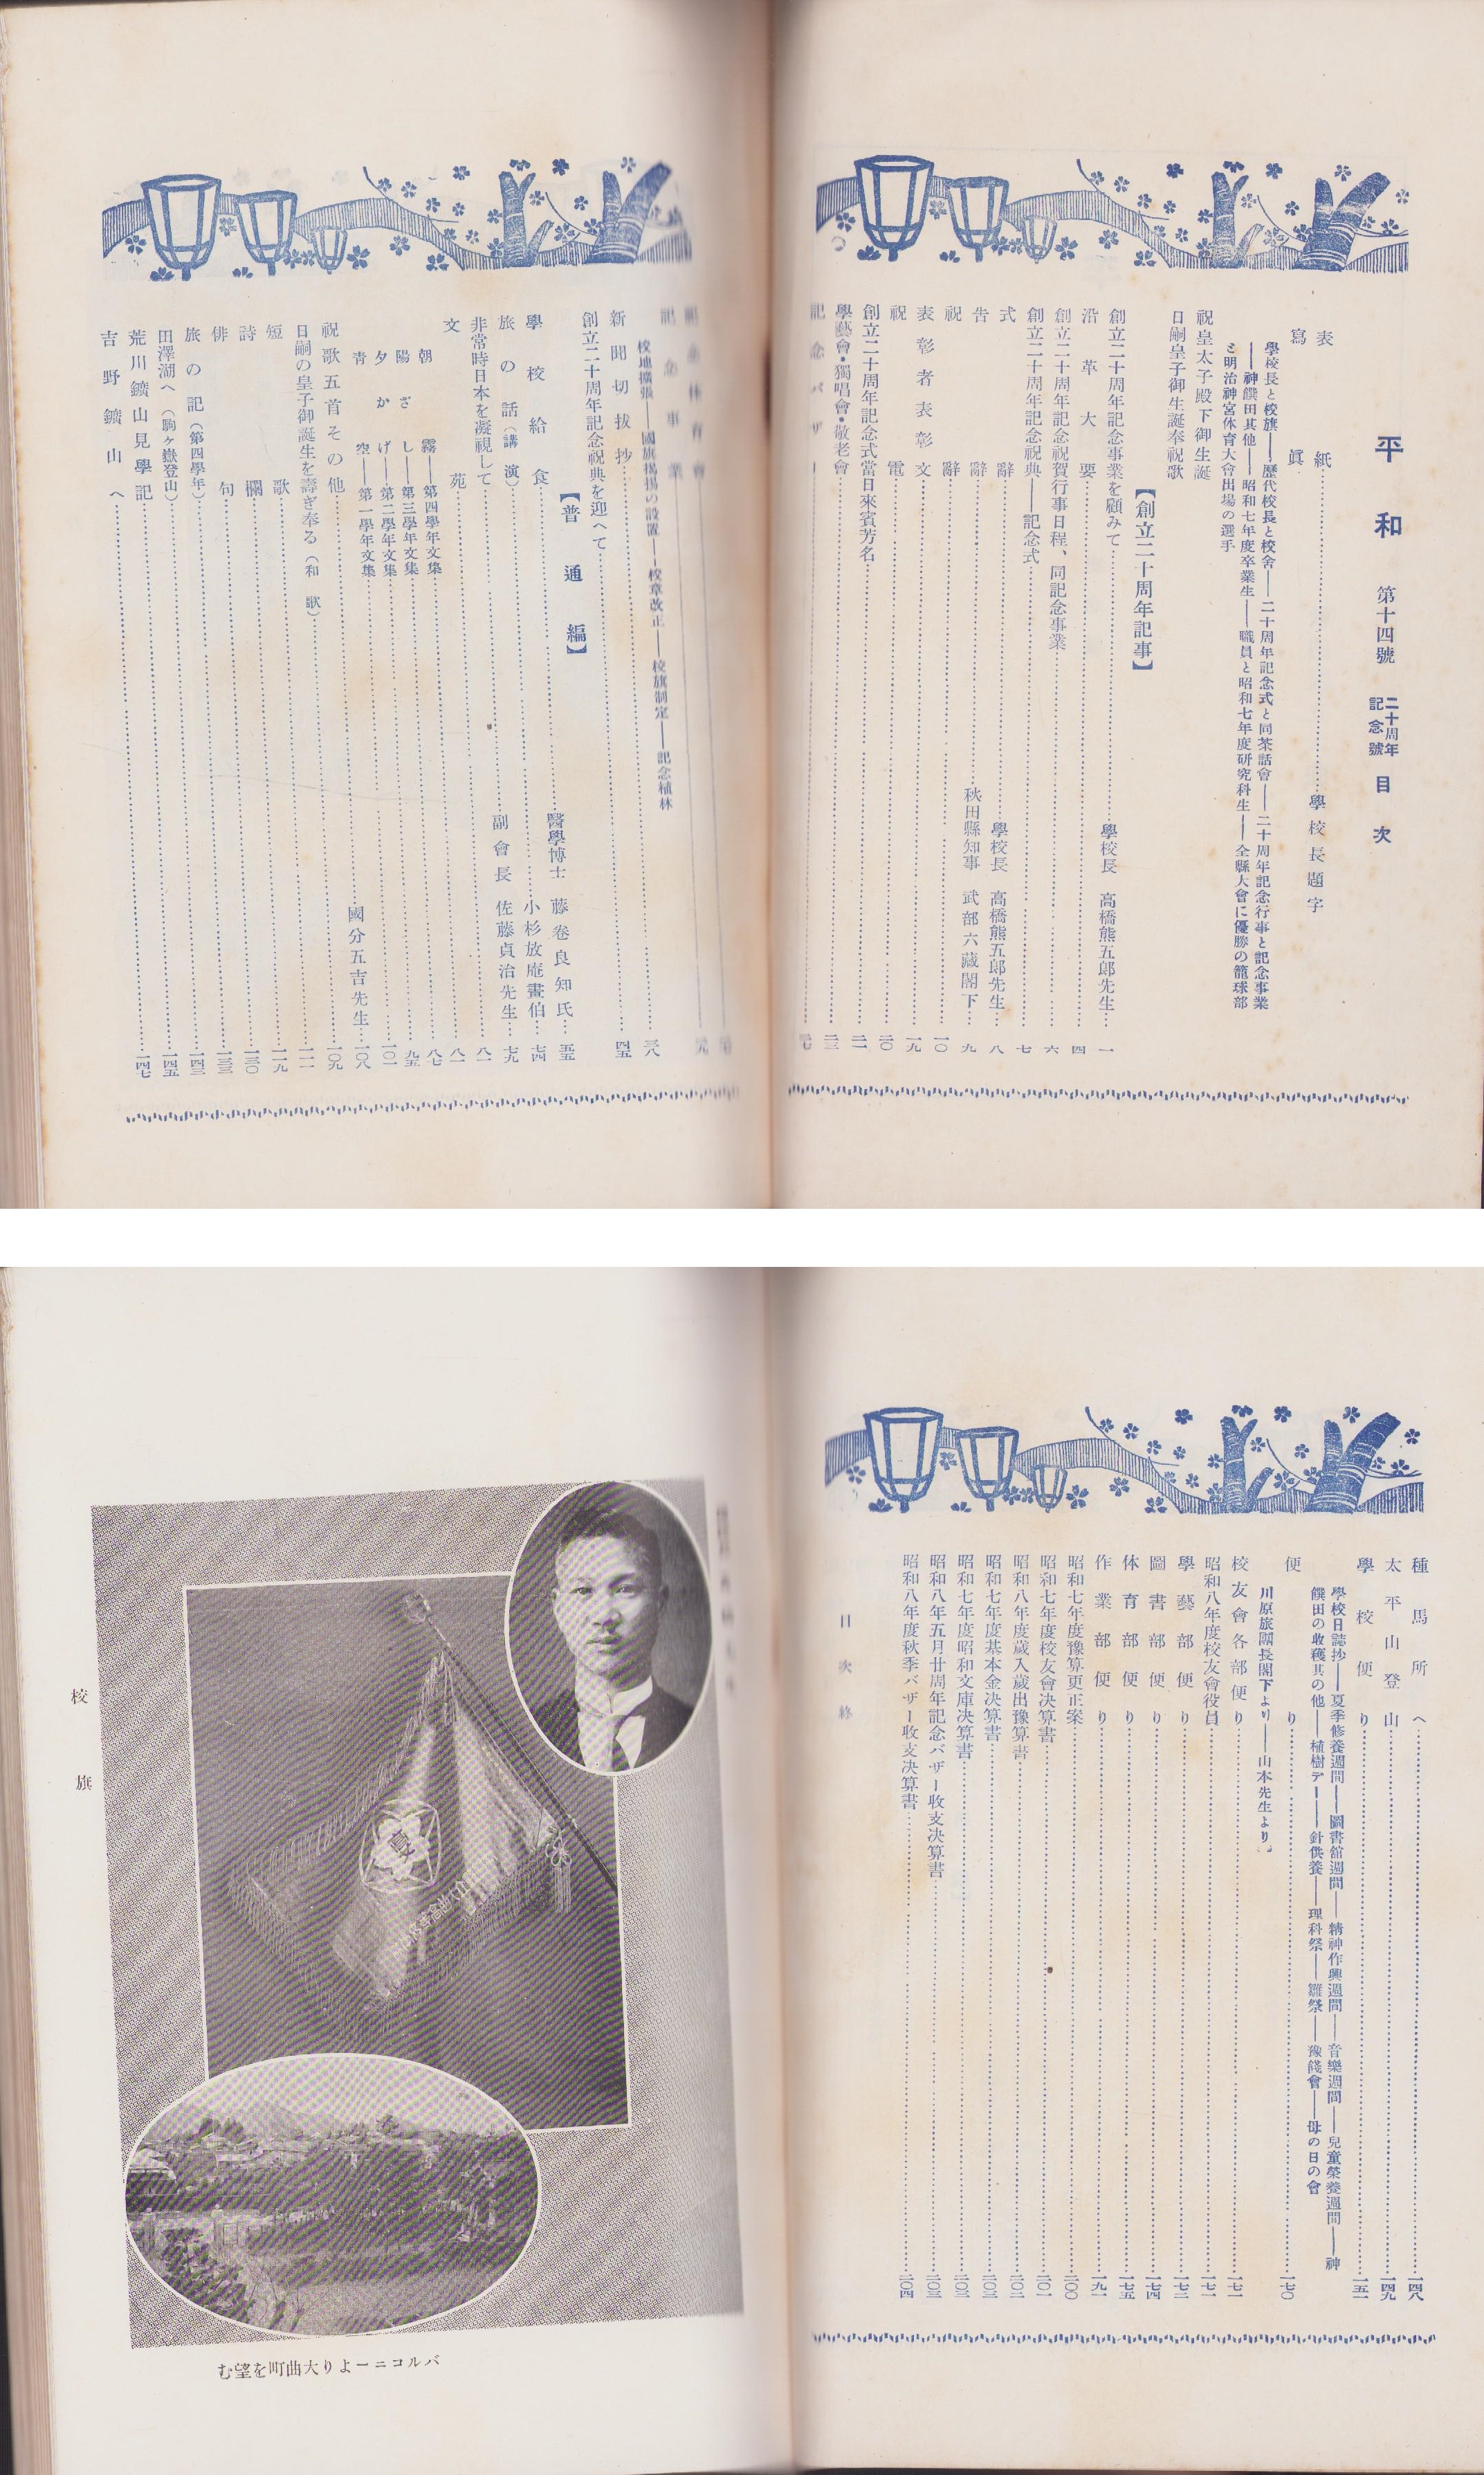 平和 第十四號 二十周年記念號 目次
表紙……學校長題字
寫眞
學校長と校旗――歷代校長と校舍――二十周年記念式と同茶話會――二十周年記念行事と記念事業
――神饌田其他――昭和七年度卒業生――職員と昭和七年度研究科生――全縣大會に優勝の籠球部
と明治神宮体育大會出場の選手
祝皇太子殿下御生誕
日嗣皇子御生誕奉祝歌
【創立二十周年記事】
創立二十周年記念事業を顧みて……學校長 高橋熊五郎先生…一
沿革大要……四
創立二十周年記念祝賀行事日程、同記念事業……六
創立二十周年記念祝典――記念式……七
式辭……學校長 高橋熊五郎先生…八
告辭……秋田縣知事 武部六藏閣下…九
祝辭……一〇
表彰者表彰文……一九
祝電……二〇
創立二十周年記念式當日來賓芳名……二一
學藝會・獨唱會・敬老會……二三
記念バザー
記念体育會
記念事業
校地擴張――國旗揭揚の設置――校章改正――校旗制定――記念植林
新聞切拔抄……三八
創立二十周年記念祝典を迎へて……四五
【普通編】
學校給食……醫學博士 藤卷良知氏…五五
旅の話(講演)……小杉放庵畫伯…七四
非常時日本を凝視して……副會長 佐藤貞治先生…七九
文苑……八一
朝霧――第四學年文集……八一
陽ざし――第三學年文集……八七
夕かげ――第二學年文集……九五
靑空――第一學年文集……一〇一
祝歌五首その他……國分五吉先生…一〇八
日嗣の皇子御誕生を壽ぎ奉る(和歌)……一〇九
短歌……一一一
詩欄……一一九
俳句……一三〇
旅の記(第四學年)……一三三
田澤湖へ(駒ヶ嶽登山)……一四三
荒川鑛山見學記……一四五
吉野鑛山へ……一四七
種馬所へ……一四八
太平山登山……一四九
學校便り……一五一
學校日誌抄――夏季修養週間――圖書舘週間――精神作興週間――音樂週間――兒童榮養週間――神
饌田の收穫其の他――植樹デー――針供養――理科祭――雛祭――豫餞會――母の日の會
便り……一七〇
川原旅團長閣下より――山本先生より
校友會各部便り……一七一
昭和八年度校友會役員……一七一
學藝部便り……一七二
圖書部便り……一七四
体育部便り……一七五
作業部便り……一九一
昭和七年度豫算更正案……二〇〇
昭和七年度校友會決算書……二〇一
昭和八年度歲入歲出豫算書……二〇二
昭和七年度基本金決算書……二〇三
昭和七年度昭和文庫決算書……二〇三
昭和八年五月廿周年記念バザー收支決算書……二〇三
昭和八年度秋季バザー收支決算書……二〇四
目次終
校旗
む望を町曲大りよーニコルバ